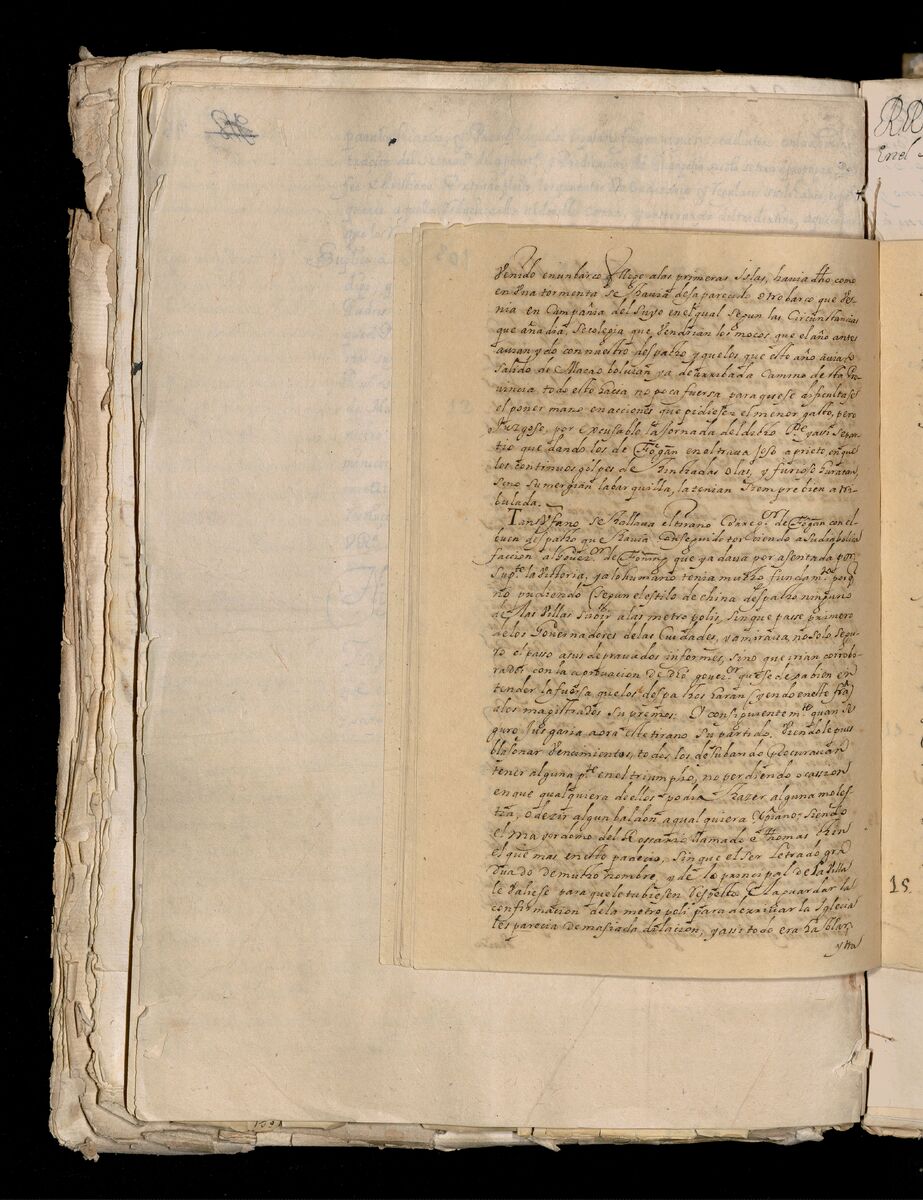 Venido en un barco q̃ llego a las primeras Islas, havia dho como
en Una tormenta se havia desaparecido otro barco que Ve-
nia en Compañia del Suyo en el qual segun las Circunstancias
que añadia, se colegia que Vendrian los moços que el año antes
avian ydo con nuestro despacho y que los que este año avia
salido de Macao bolvian ya de arribada Camino de sta Pro-
vincia todo esto hacia no poca fuersa para que se dificultase
el poner mano en acciones que pidiesen el menor gasto, pero
Jusgose, por excusable la Jornada del dicho Pe. y assi se par-
tio quedando los de Fogan en el trava Joso aprieto, en que
los continuos golpes de hinchadas olas, y furioso huracan,
sino sumergian la barquilla, la tenian siempre bien a tri-
bulada.
Tan Vfano se hallava el tirano Correg.or de Fogan con el
buen despacho que havia conseguido torciendo a su diabolica
faccion al Gover.or de Foning que ya dava por asentada por
su p.te la Vittoria, y a lo humano tenia mucho fundam.to porq̃
no pudiendo (segun el estilo de china) despacho ninguno
de las Villas subir a las metropolis, sin que passe primero
de los Governadores de las Ciudades, ya mirava, no solo segu-
ro el passo a sus depravados informes, sino que irian corrobo-
rados con la aprovacion de dho gover.or que se deja bien en-
tender la fuersa que los despachos haran (yendo en esta fra)
a los magistrados supremos. Y consiguientem.te quan se-
guro Jusgaria aora este tirano su partido. Viendole pues
blasonar Vencimientos, todos los de su bando procuravan
tener alguna p.te en el triumpho, no perdiendo ocassion
en que qualquiera de ellos podia hazer alguna moles-
tia, o dezir algun baldon a qualquiera Xp̃iano; siendo
el mayordomo del Rossario llamado thomas Chin
el que mas en esto padecio, sin que el ser Letrado gra
duado de mucho nombre, y de lo principal de la Villa
le Valiese para que le tubiesen respecto. El aguardar la
confirmacion de la metropoli para derribar la Iglecia
les parecia demasiada dilacion, y assi todo era hablar,
15.